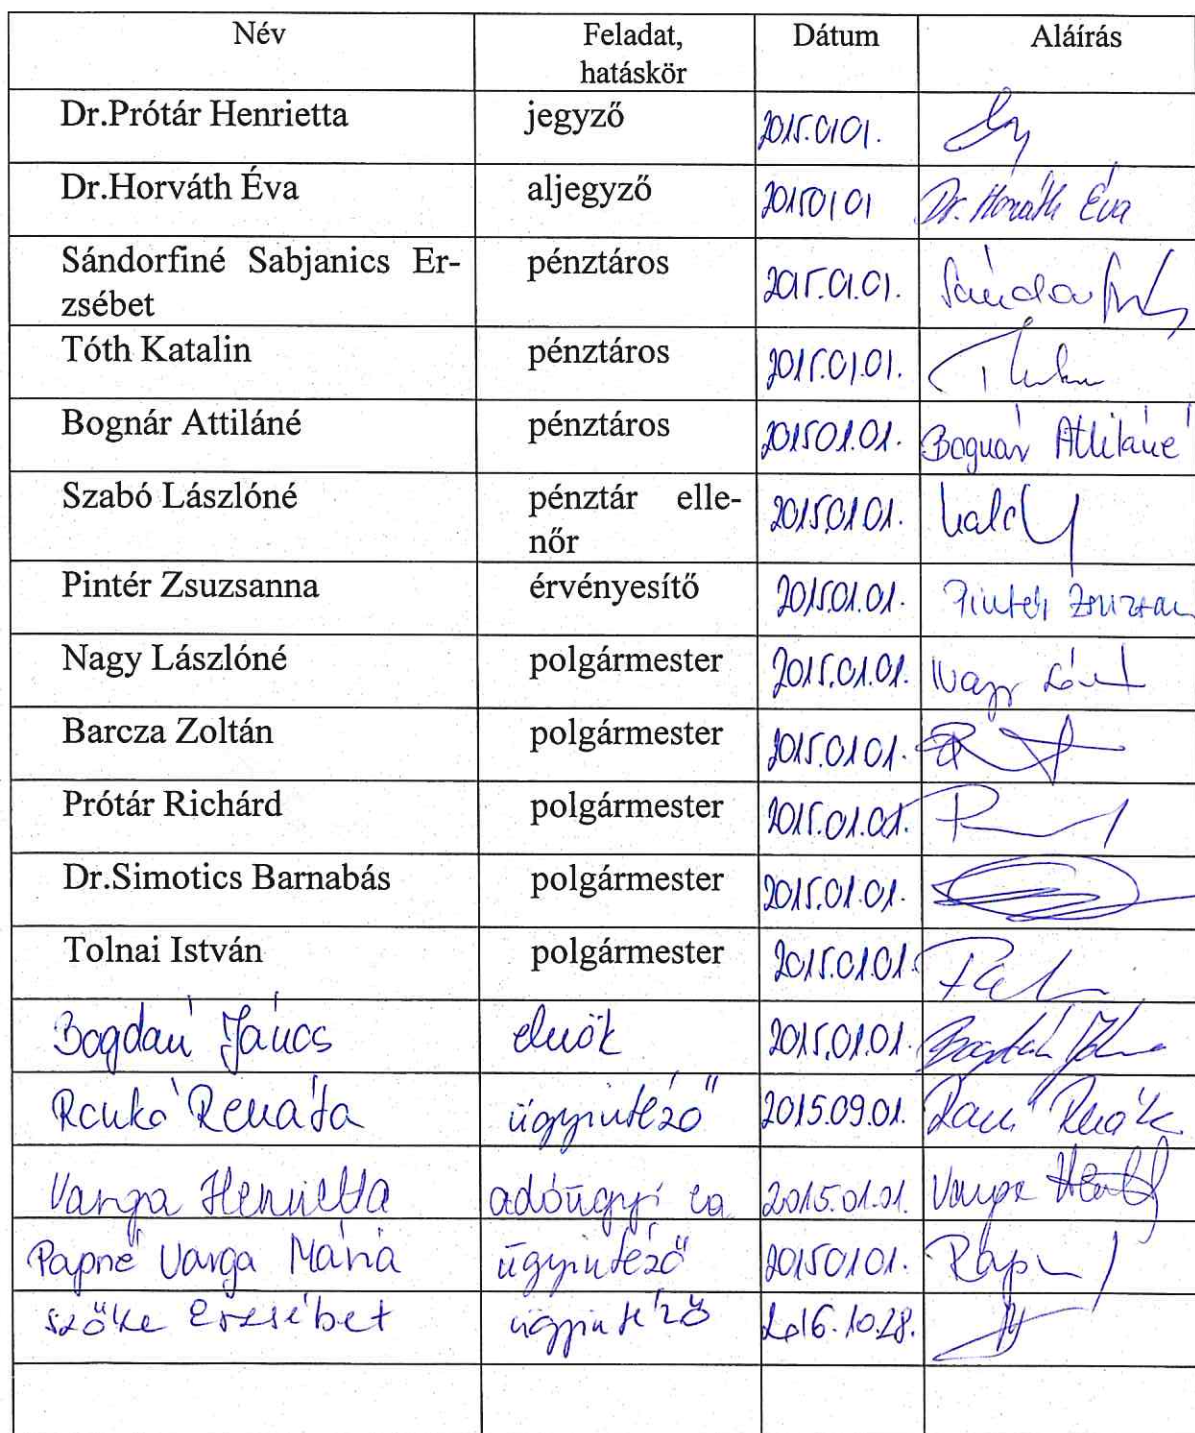 Név Feladat, Dátum Aláírás
hatáskör
Dr.Prótár Henrietta jegyző 2015.01.01.
Dr.Horváth Éva aljegyző 2015.01.01 Dr. Horváth Éva
Sándorfiné Sabjanics Er- pénztáros 2015.01.01.
zsébet
Tóth Katalin pénztáros 2015.01.01.
Bognár Attiláné pénztáros 2015.01.01. Bognár Attiláné
Szabó Lászlóné pénztár elle- 2015.01.01.
nőr
Pintér Zsuzsanna érvényesítő 2015.01.01. Pintér Zsuzsan
Nagy Lászlóné polgármester 2015.01.01. Nagy
Barcza Zoltán polgármester 2015.01.01.
Prótár Richárd polgármester 2015.01.01.
Dr.Simotics Barnabás polgármester 2015.01.01.
Tolnai István polgármester 2015.01.01.
Bogdán János elnök 2015.01.01. Bogdán
Renáta ügyintéző 2015.09.01.
Varga Henrietta adóügyi 2015.01.01. Varga
Papné Varga Mária ügyintéző 2015.01.01.
Szőke Erzsébet ügyintéző 2016.10.28.